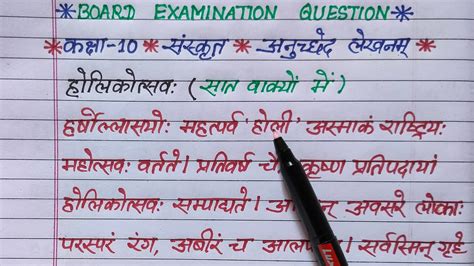 *BOARD EXAMINATION QUESTION*
*कक्षा-10 * संस्कृत * अनुच्छेद लेखनम् *
होलिकोत्सवः (सात वाक्यों में)
हर्षोल्लासयोः महत्पर्व 'होली' अस्माकं राष्ट्रियः
महोत्सवः वर्तते। प्रतिवर्षं कृष्ण प्रतिपदायां
होलिकोत्सवः सम्पाद्यते। अवसरे लोकाः
परस्परं रंग, अबीरं च सर्वस्मिन् गृहे